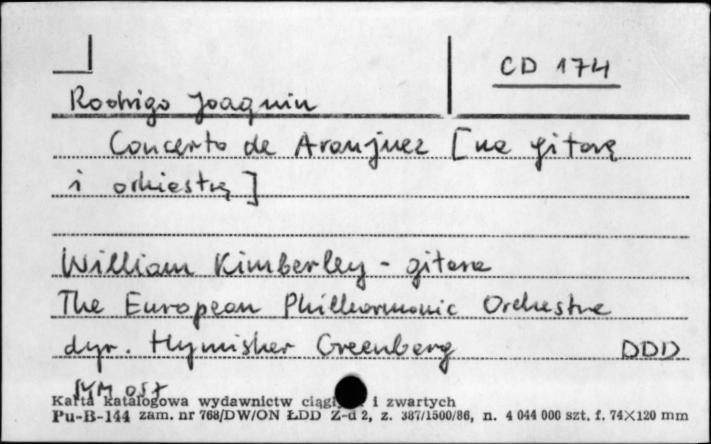 CD 174
Rodrigo Joaquin
Concerto de Aranjuez [na gitarę
i orkiestrę]
William Kimberley - gitara
The European Philharmonic Orchestra
dyr. Hymisher Greenberg DDD
SYM 057
Karta katalogowa wydawnictw ciągł i zwartych
Pu-B-144 zam. nr 768/DW/ON ŁDD Z-d 2, z. 387/1500/86, n. 4 044 000 szt. f. 74×120 mm